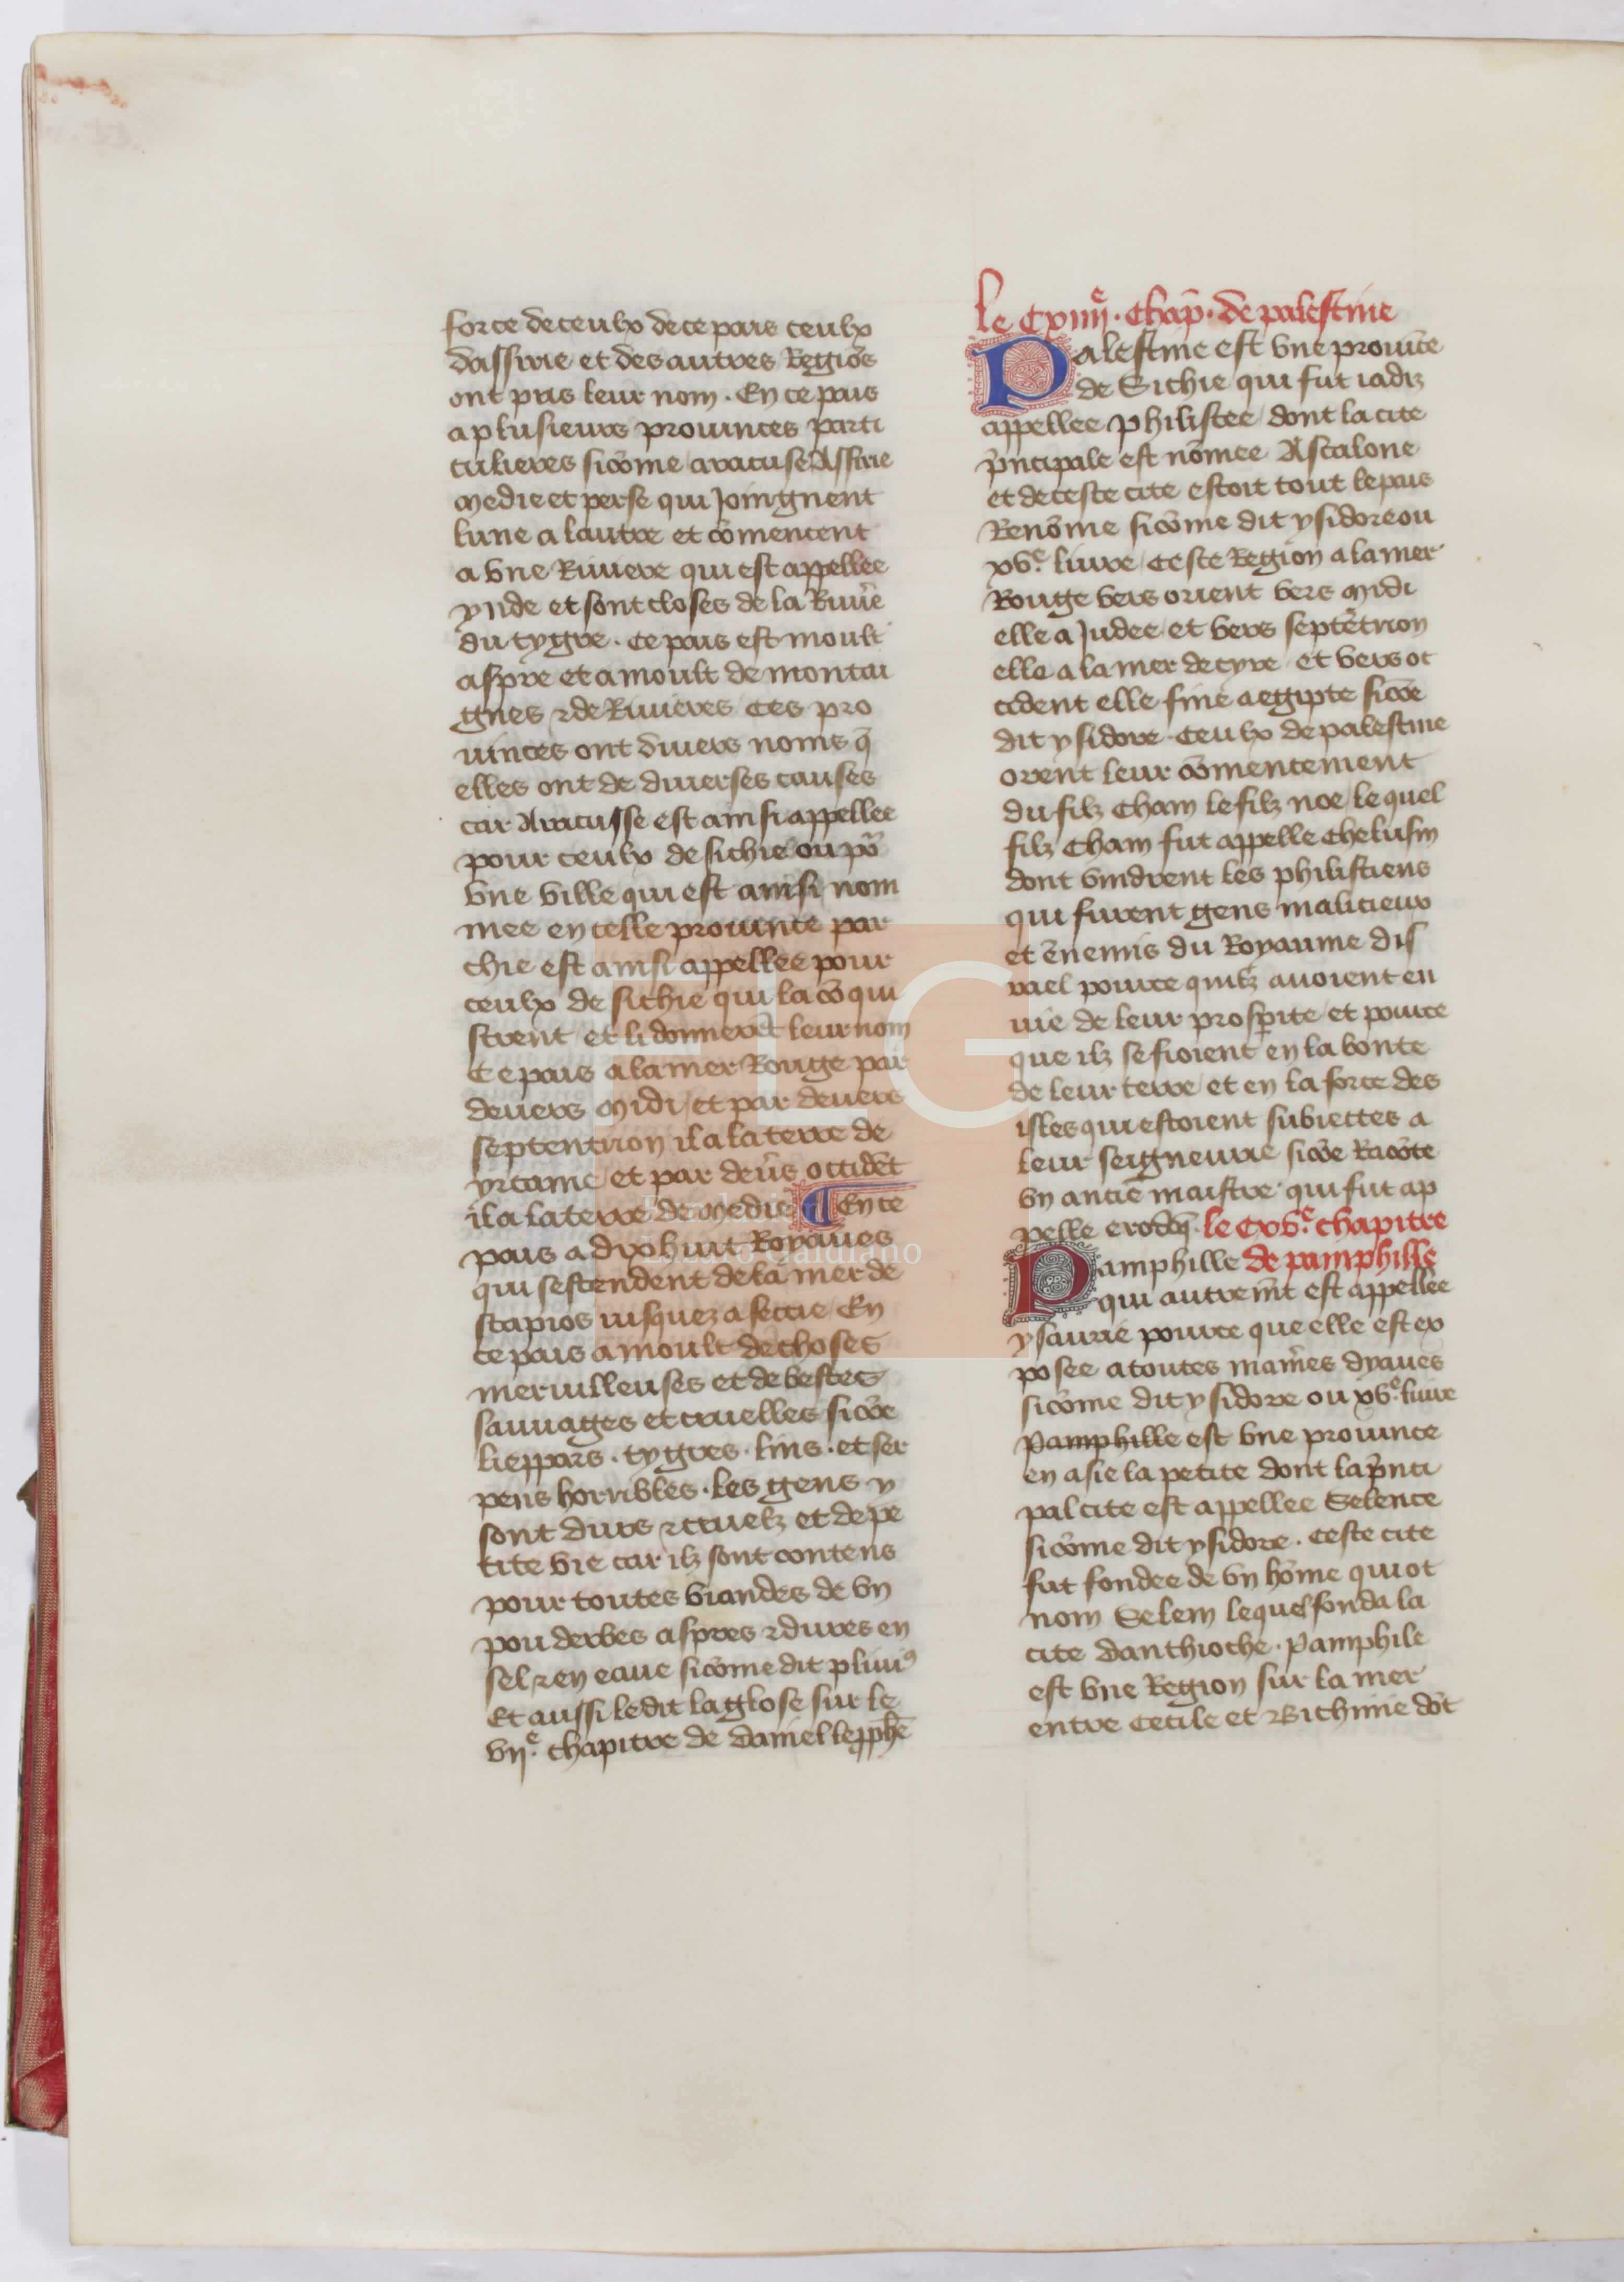 force de ceulx de ce pais ceulx
dassirie et des autres Regiõs
ont pris leur nom . En ce pais
a plusieurs prouinces parti
culieres sicõme aracuse Assirie
medie et perse qui Joingnent
lune a lautre et cõmencent
a vne Riuiere qui est appellee
ynde et sont closes de la Riuẽ
du tygre . ce pais est moult
aspre et a moult de montai
gnes ⁊ de Riuieres Ces pro
uinces ont diuers noms q̃
elles ont de diuerses causes
car Aracusse est ainsi appellee
pour ceulx de sichie ou po᷑
vne ville qui est ainsi nom
mee en celle prouince par
chie est ainsi appellee pour
ceulx de sichie qui la cõqui
strent / et li donnerẽt leur nom
Ce pais a la mer Rouge par
deuers midi / et par deuers
septentrion il a la terre de
yrcanie et par deũs occidẽt
il a la terre de medie ¶ En ce
pais a dix huit Royaũes
qui sestendent de la mer de
scapios iusquez a secrie En
ce pais a moult de choses
meruilleuses et de bestes
sauuages et cruelles sicõe
lieppars . tygres . lins . et ser
pens horribles . les gens y
sont durs ⁊ cruelz et de pe
tite vie car ilz sont contens
pour toutes viandes de vn
pou derbes aspres ⁊ dures en
sel ⁊ en eaue sicõme dit pliniꝰ
Et aussi le dit la glose sur le
vijᵉ. chapitre de daniel le pphẽ
le Cxiiijᵉ . Chap̃ . de palestine
Palestine est vne prouĩce
de Sichie qui fut iadiz
appellee philistee dont la cite
p̃ncipale est nõmee Ascalone
et de ceste cite estoit tout le pais
Renõme sicõme dit ysidore ou
xvᵉ. liure / Ceste Region a la mer
Rouge vers orient vers midi
elle a Judee / et vers septẽtrion
elle a la mer de tyre / et vers oc
cident elle fine a egipte sicõe
dit ysidore . Ceulx de palestine
orent leur cõmencement
du filz Cham le filz noe / lequel
filz Cham fut appelle Chelusin
dont vindrent les philistiens
qui furent gens malicieux
et ẽnemis du Royaume dis
rael pource quilz auoient en
uie de leur prosperite / et pource
que ilz se fioient en la bonte
de leur terre / et en la force des
isles qui estoient subiectes a
leur seigneurie sicõe Racõte
vn anciẽ maistre qui fut ap
pelle erodoq̃ . le Cxvᵉ. chapitre
Pamphille de pamphille
qui autremẽt est appellee
ysaurie pource que elle est ex
posee a toutes manĩes dyaues
sicõme dit ysidore ou xvᵉ. liure
Pamphille est vne prouince
en asie la petite dont la p̃nci
pal cite est appellee Selence
sicõme dit ysidore . Ceste cite
fut fondee de vn hõme qui ot
nom Selem lequel fonda la
cite danthioche . Pamphile
est vne Region sur la mer
entre Cecile et Bithinie dõt